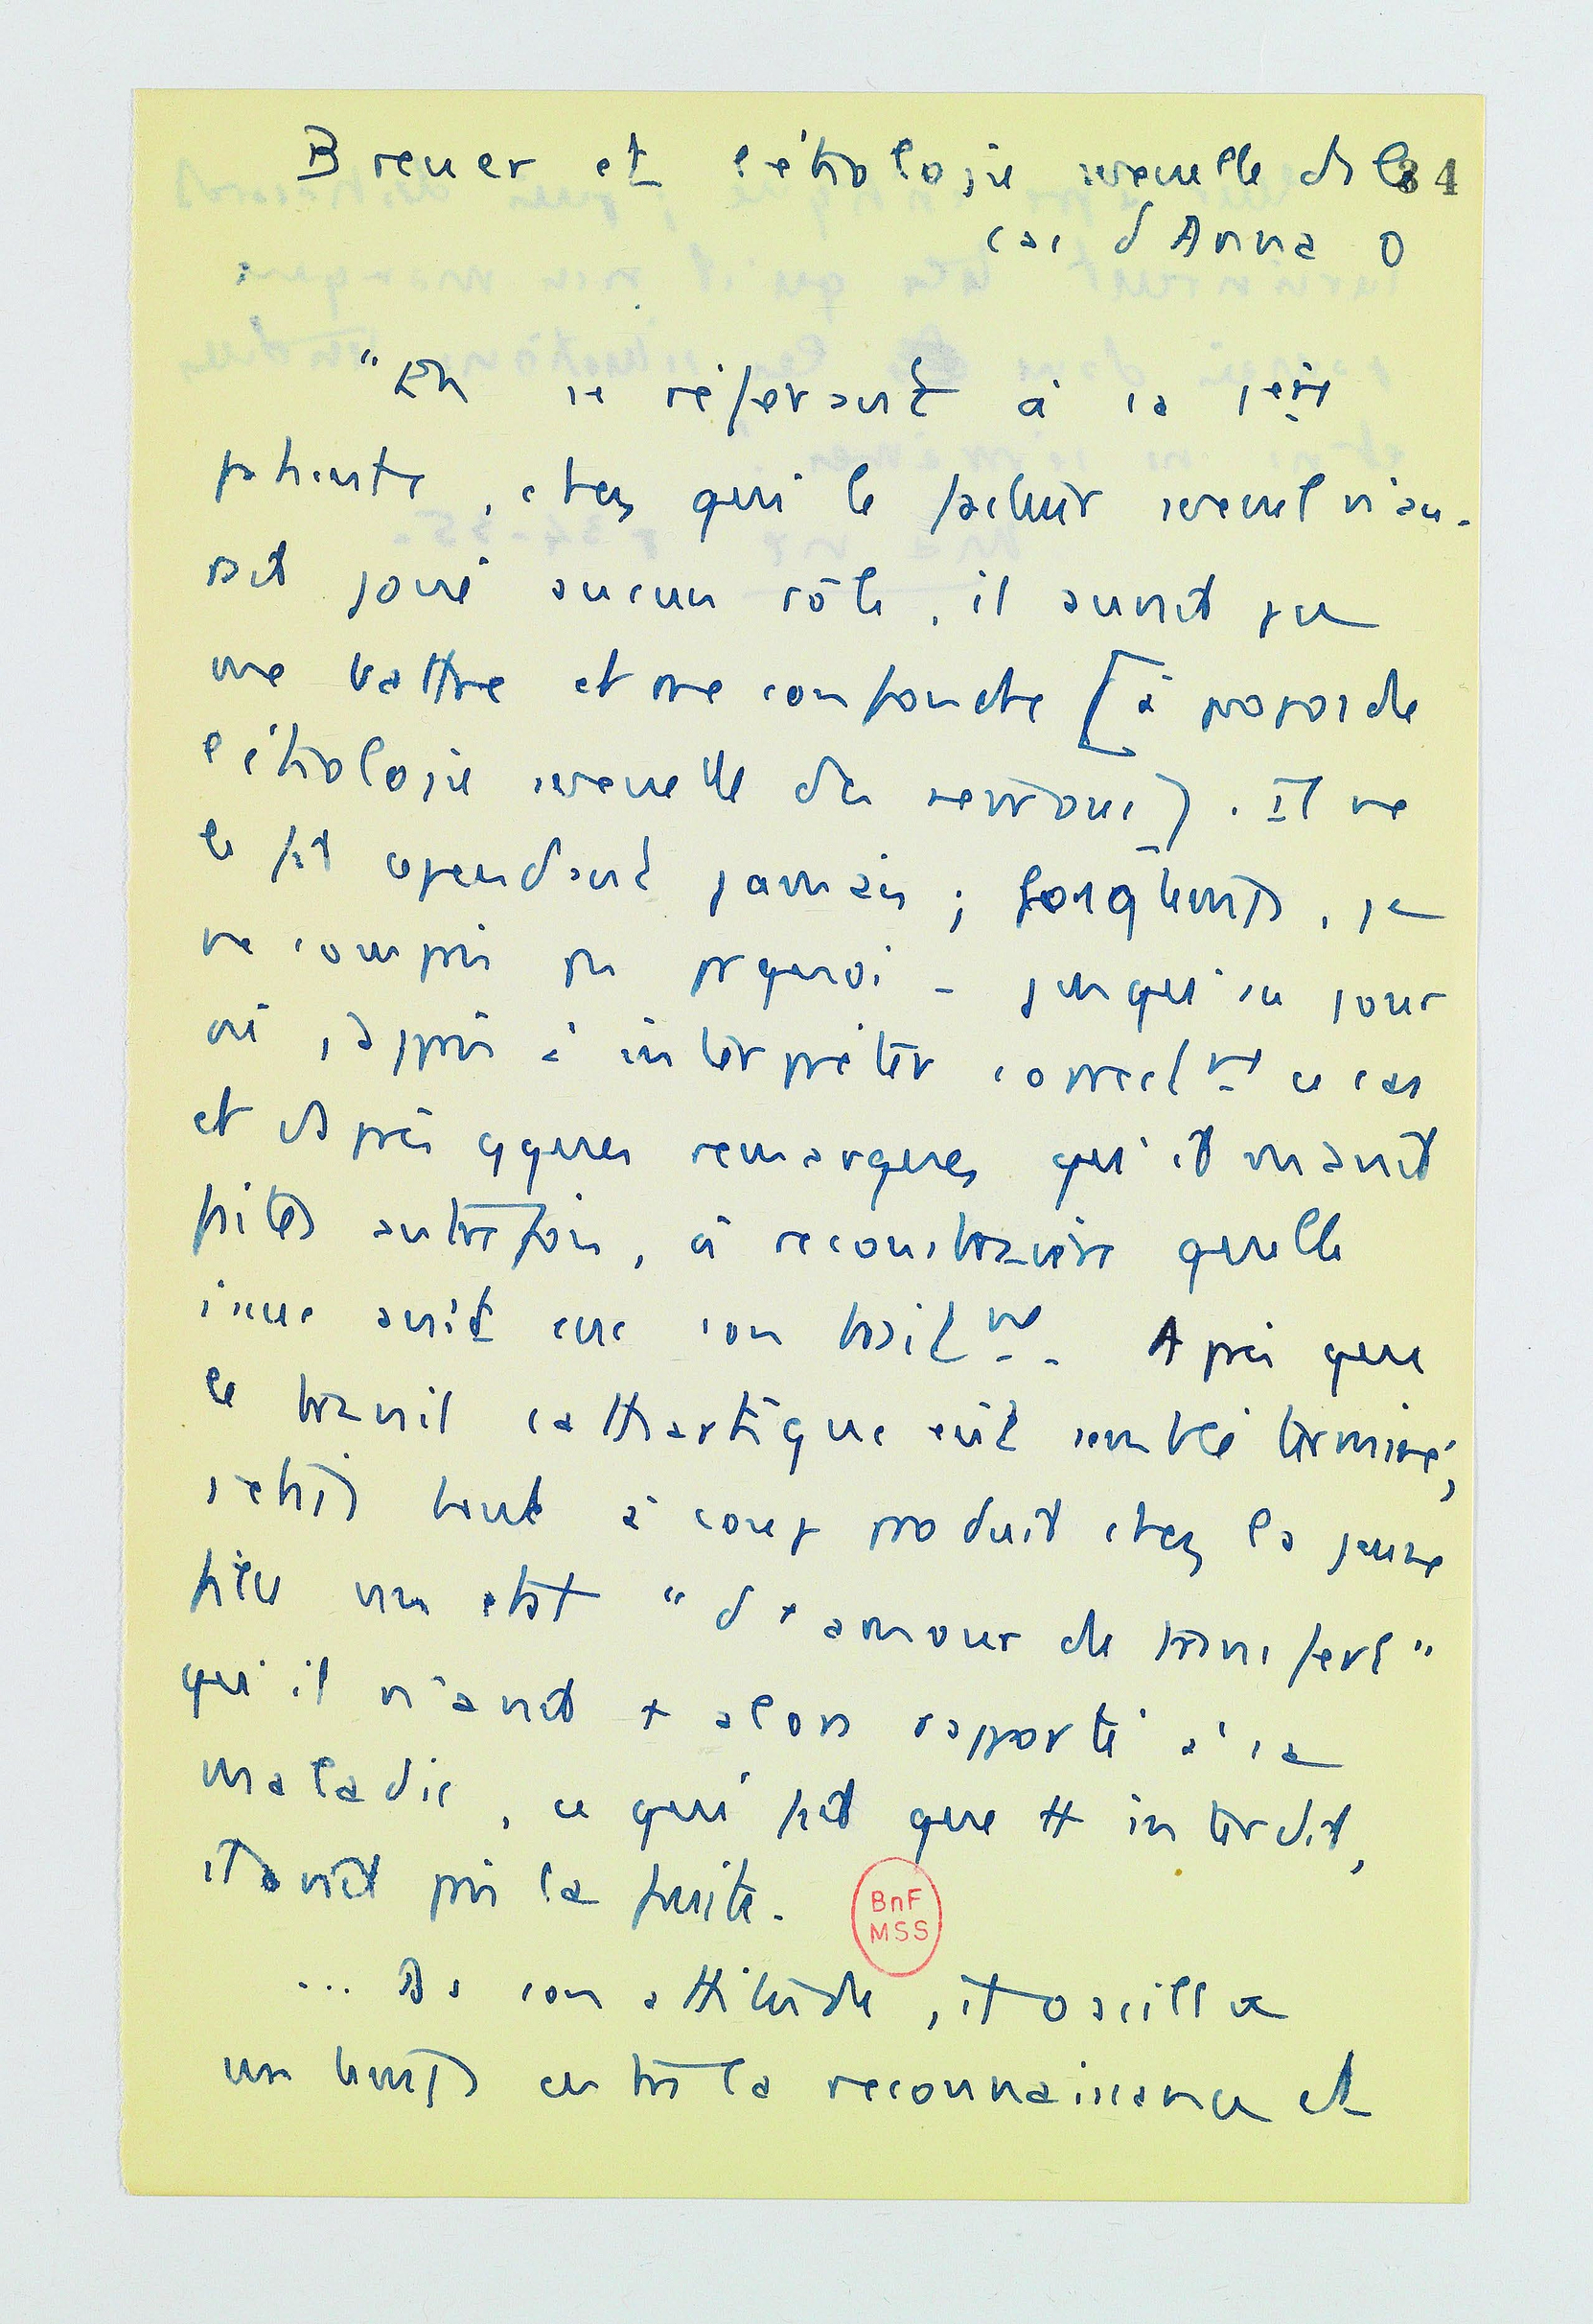 Breuer et l'étiologie sexuelle ds le
34
cas d'Anna O
"En se référant à sa 1ère
patiente, chez qui le facteur sexuel n'au-
rait joué aucun rôle, il aurait pu
me battre et me confondre [à propos de
l'étiologie sexuelle des névroses]. Il ne
le fit cependant jamais ; longtemps, je
ne compris pas pquoi - jusqu'au jour
où j'appris à interpréter correctnt ce cas
et d'après qques remarques qu'il m'avait
faites autrefois, à reconstruire quelle
issue avait eue son traitnt. Après que
le travail cathartique eût semblé terminé,
s'était tout à coup produit chez la jeune
fille un état "d'amour de transfert"
qu'il n'avait + alors rapporté à sa
maladie, ce qui fait que tt interdit,
il avait pris la fuite.
BnF
MSS
... Ds son attitude, il oscilla
un temps entre la reconnaissance et